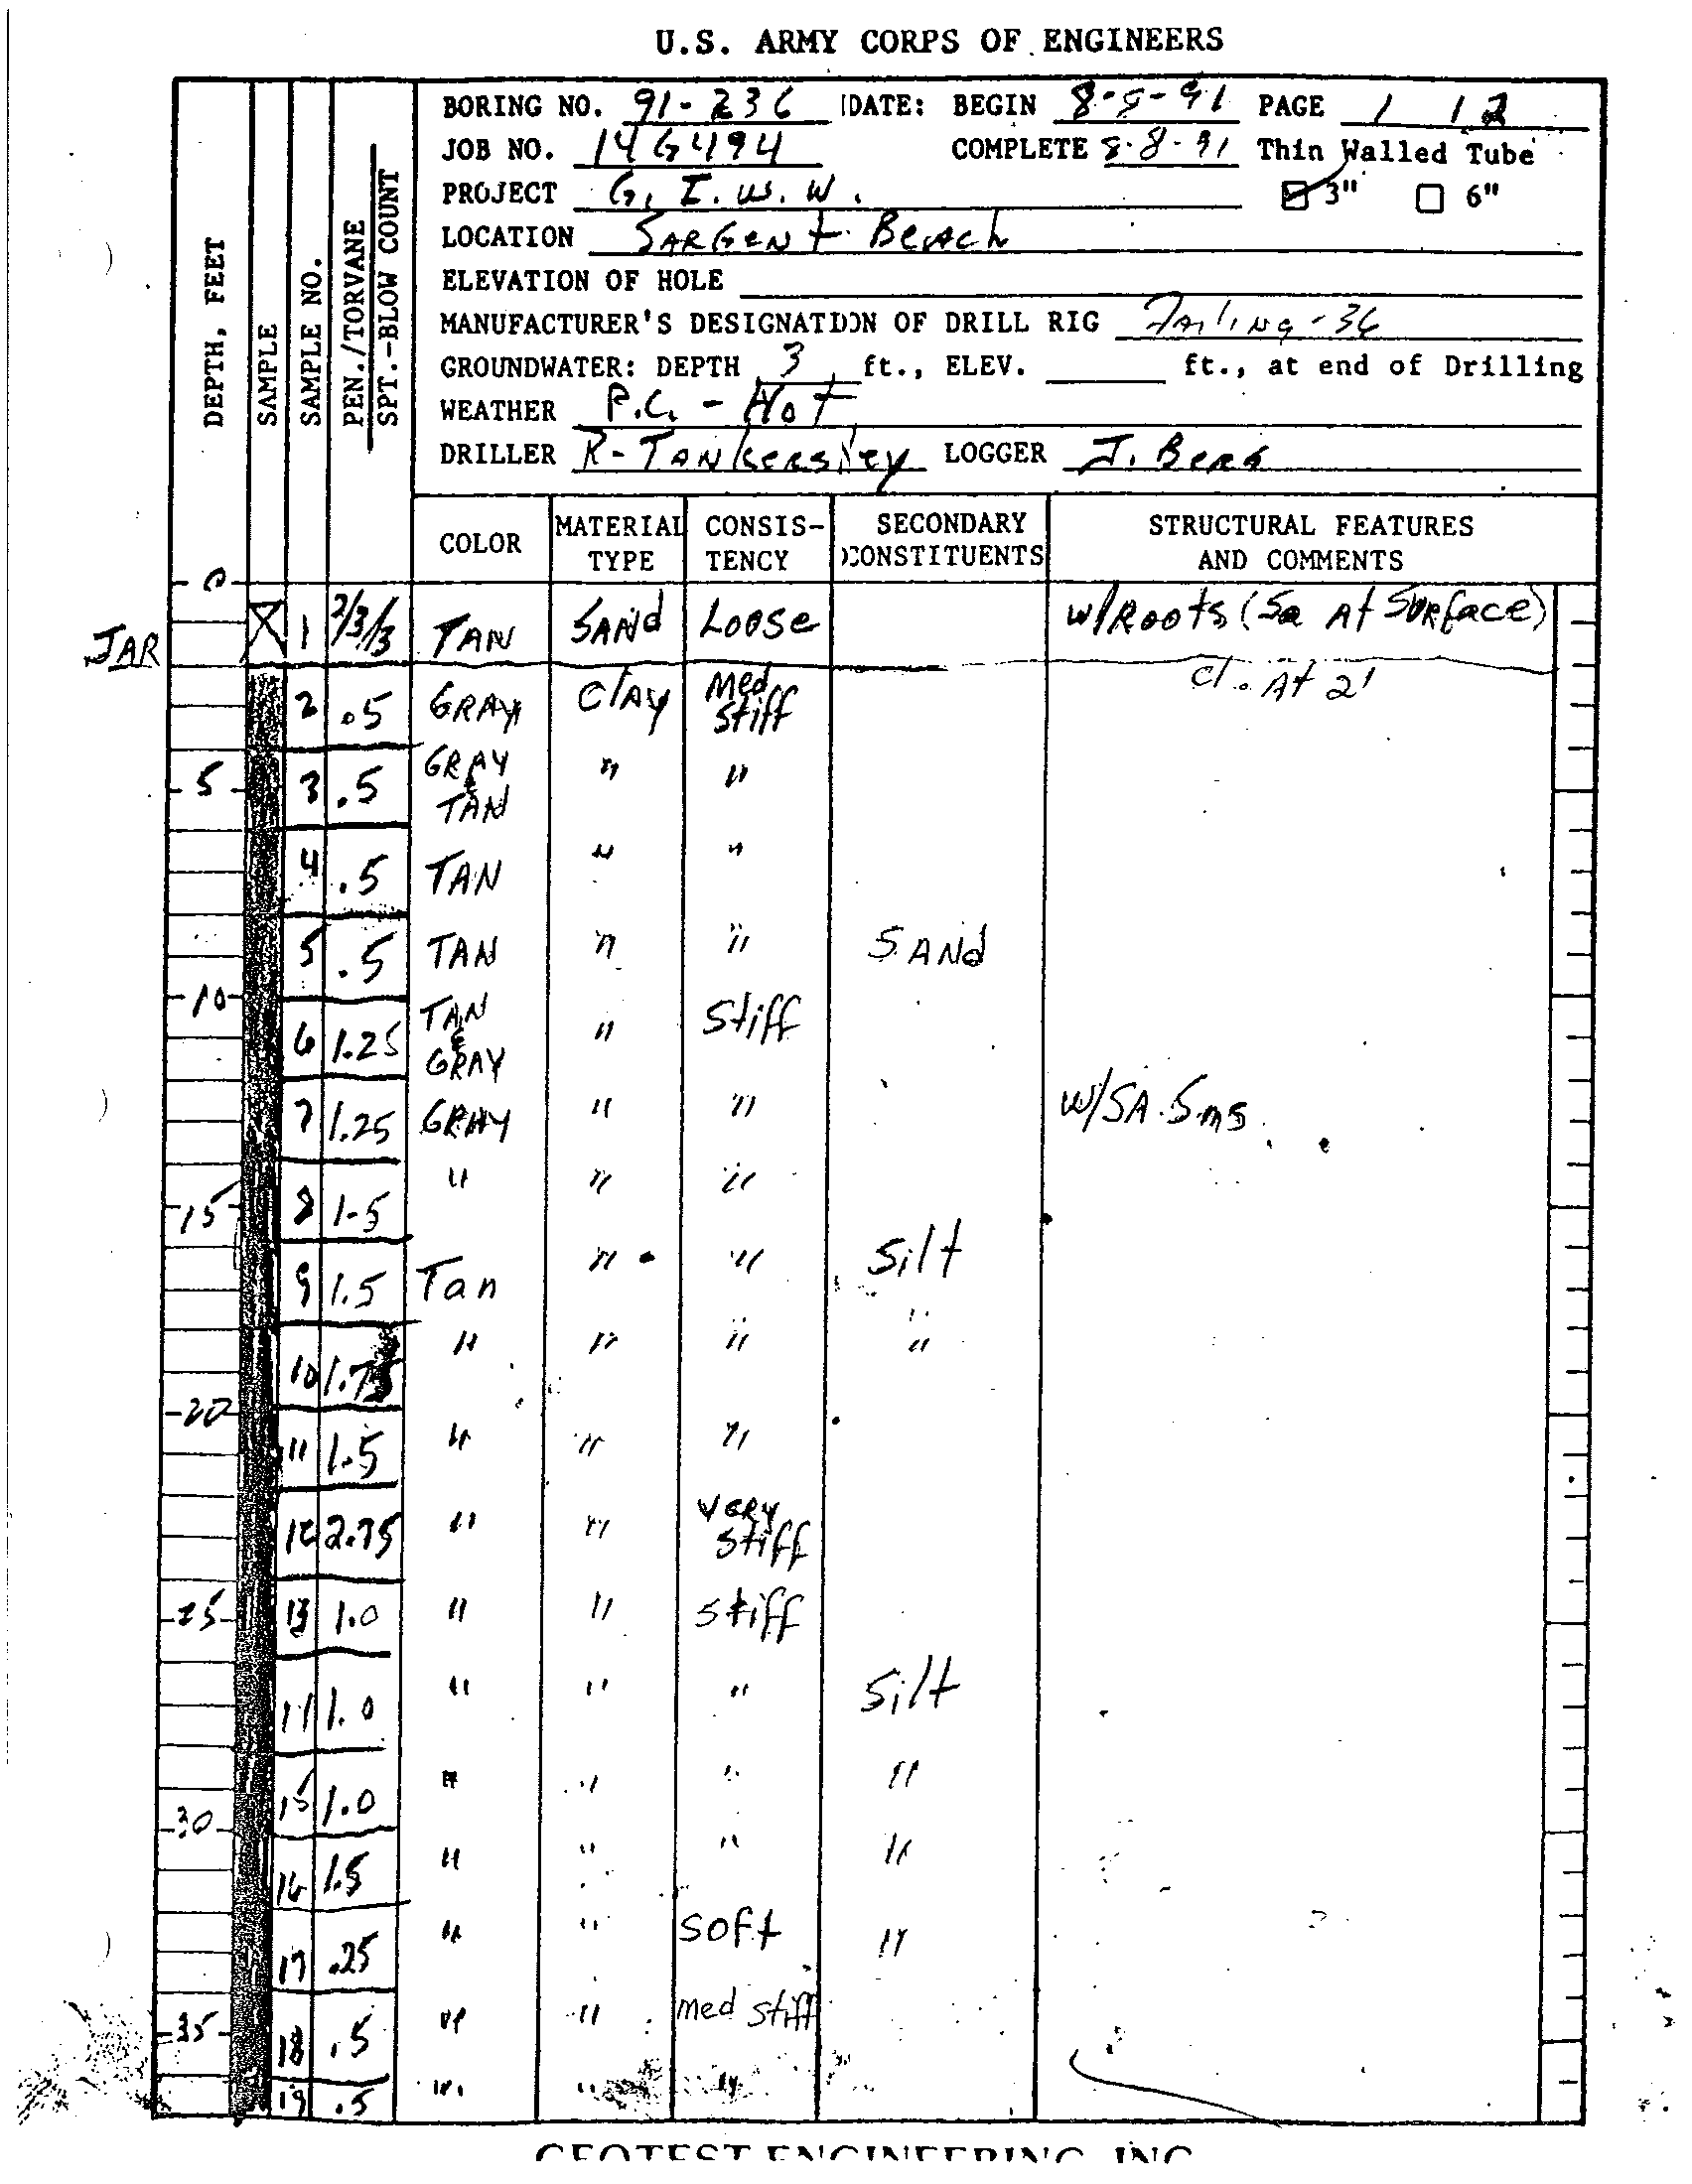 U.S. ARMY CORPS OF ENGINEERS
BORING NO. 91-236 DATE: BEGIN 8-8-91 PAGE 1 / 2
JOB NO. 14G494 COMPLETE 8-8-91 Thin Walled Tube
PROJECT G.I.W.W. 3" 6"
LOCATION SARGENT BEACH
ELEVATION OF HOLE
MANUFACTURER'S DESIGNATION OF DRILL RIG Failing-36
GROUNDWATER: DEPTH 3 ft., ELEV. ft., at end of Drilling
WEATHER P.C. - Hot
DRILLER R-TANKERSLEY LOGGER J. Berg
DEPTH, FEET
SAMPLE
SAMPLE NO.
PEN./TORVANE
SPT.-BLOW COUNT
COLOR MATERIAL TYPE CONSIS-TENCY SECONDARY CONSTITUENTS STRUCTURAL FEATURES AND COMMENTS
0
JAR 1 2/3/3 TAN SANd Loose w/Roots (Sa At Surface)
cl. At 2'
2 .5 GRAY ClAy Med stiff
5 3 .5 GRAY & TAN " "
4 .5 TAN " "
5 .5 TAN " " SANd
10
6 1.25 TAN & GRAY " Stiff
7 1.25 GRAY " " w/SA. Sms.
15 8 1-5 " " "
9 1.5 Tan " " Silt
10 1.75 " " " "
20
11 1.5 " " "
12 2.75 " " Very Stiff
25 13 1.0 " " stiff
14 1.0 " " " Silt
15 1.0 " " " "
30
16 1.5 " " " "
17 .25 " " Soft "
35 18 .5 " " med stiff
19 .5 " " "
GEOTEST ENGINEERING, INC.